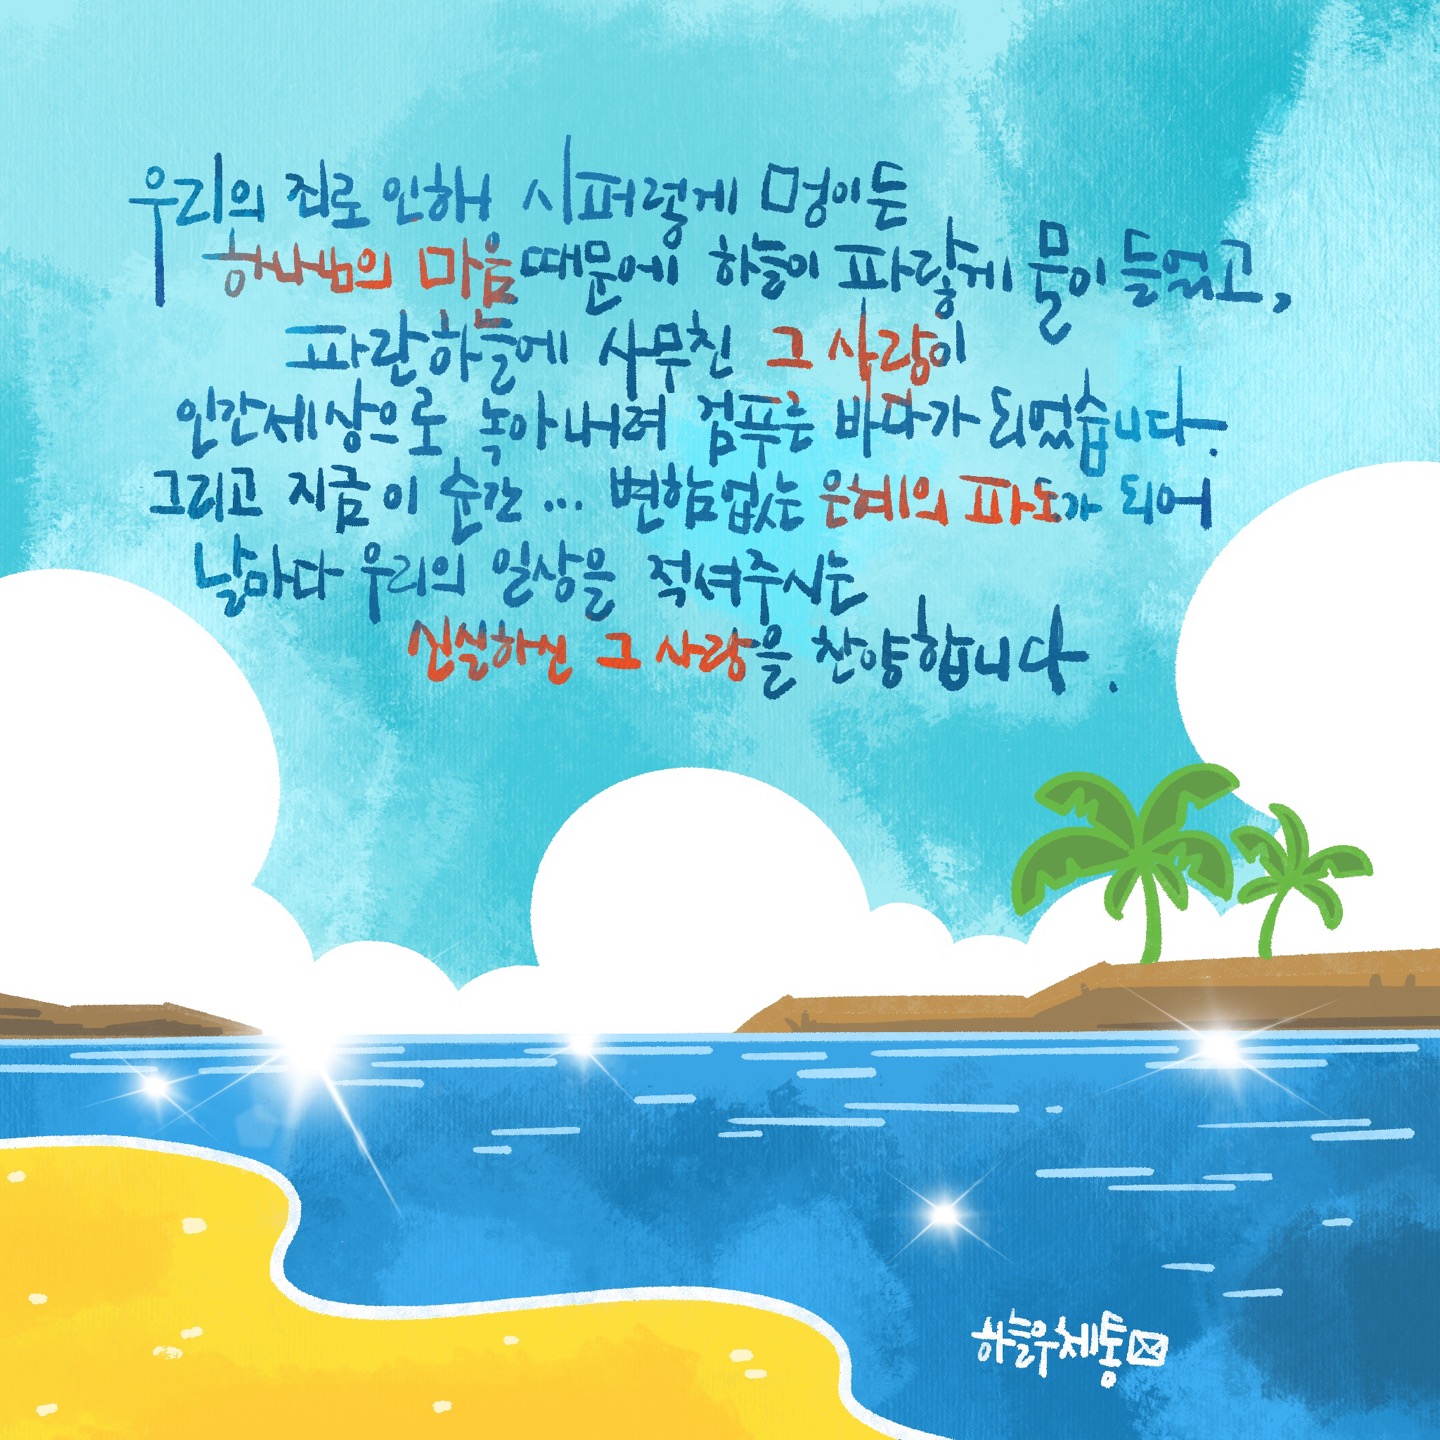 우리의 죄로 인해 시퍼렇게 멍이든
하나님의 마음때문에 하늘이 파랗게 물이 들었고,
파란하늘에 사무친 그 사랑이
인간세상으로 녹아내려 검푸른 바다가 되었습니다.
그리고 지금 이 순간 ... 변함없는 은혜의 파도가 되어
날마다 우리의 일상을 적셔주시는
신실하신 그 사랑을 찬양합니다.
하늘우체통